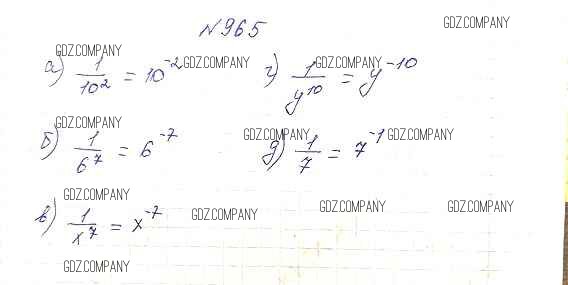 №965
GDZ.COMPANY
GDZ.COMPANY
а) 1/10² = 10⁻²
GDZ.COMPANY
г) 1/y¹⁰ = y⁻¹⁰
GDZ.COMPANY
GDZ.COMPANY
б) 1/6⁷ = 6⁻⁷
д) 1/7 = 7⁻¹
GDZ.COMPANY
GDZ.COMPANY
GDZ.COMPANY
в) 1/x⁷ = x⁻⁷
GDZ.COMPANY
GDZ.COMPANY
GDZ.COMPANY
GDZ.COMPANY